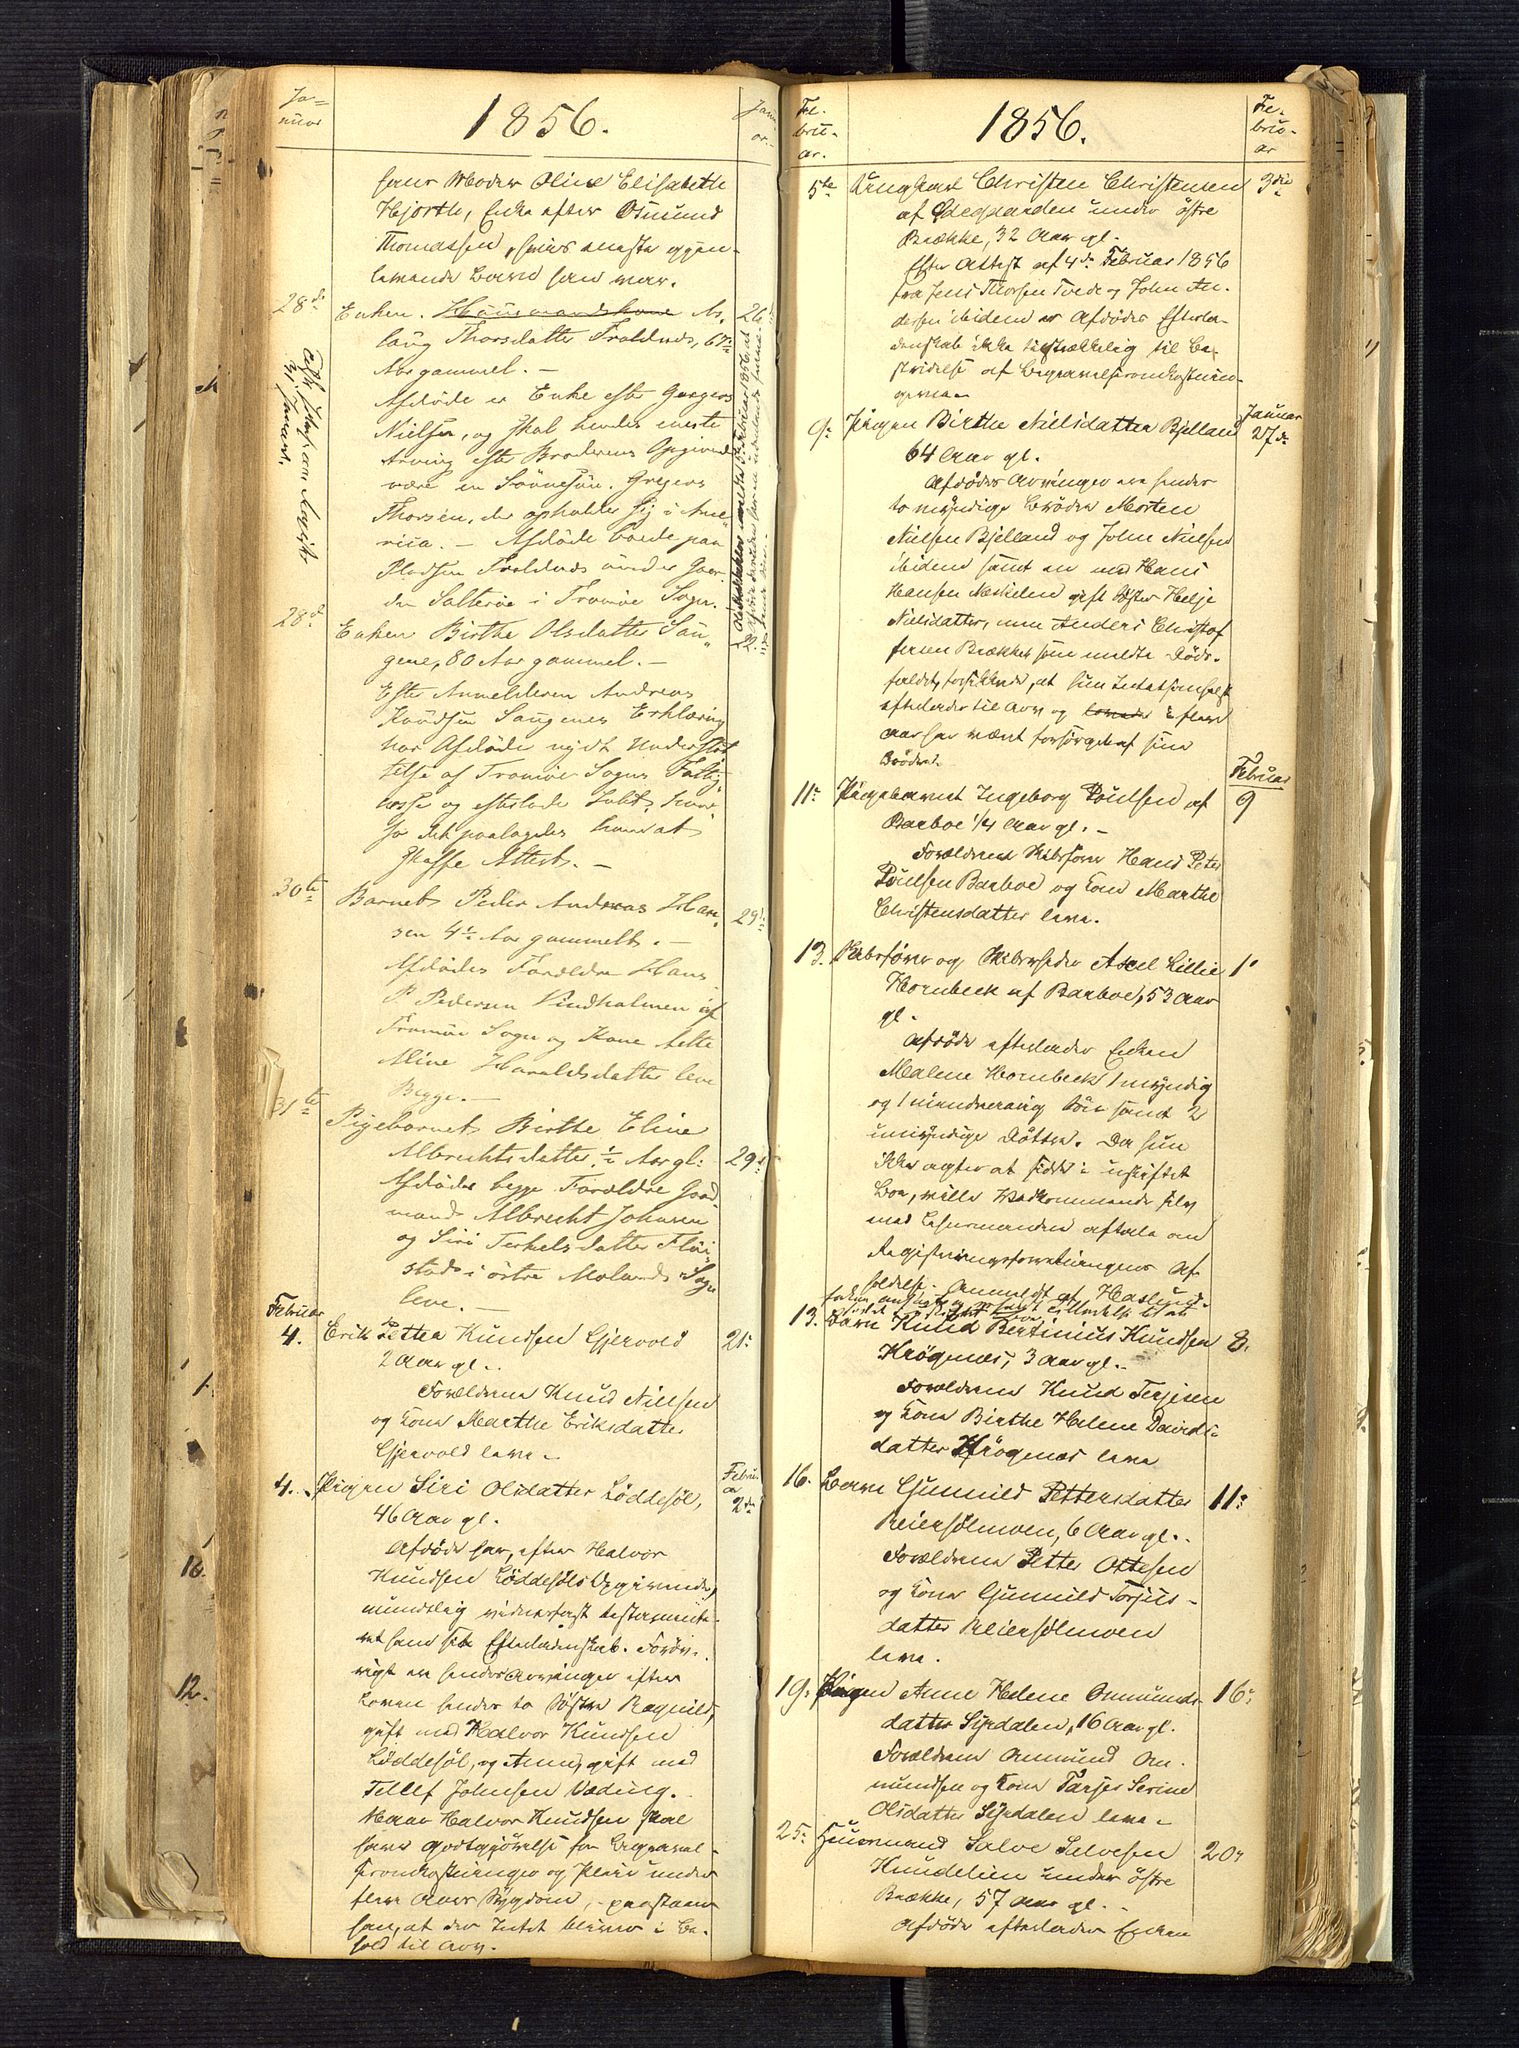 Ja-
nuar
1856.
Janu
ar.
hans Moder Oline Elisabeth
Hjorth, Enke efter Osmund
Thomassen, hvis eneste igjen-
levende Barn han var.
28de Enken Huusmandskone As-
laug Thorsdatter Traldnes, 67
Aar gammel. —
26
Afdøde er Enke efter Gregers
Nielsen, og skal hendes eneste
Arving efter Broderens Opgivende
være en Sønnesøn, Gregers
Thorsen, der opholder sig i Ame-
rica. — Afdøde boede paa
Pladsen Traldnes under Gaar-
den Salterøe i Tromøe Sogn.
28de Enken Birthe Olsdatter Sau-
gene, 80 Aar gammel. —
22
Efter Anmelderen Andreas
Knudsen Saugenes Erklæring
har Afdøde nydt Understøt-
telse af Tromøe Sogns Fattig-
casse og efterlade Intet; hvor-
for det paalagdes ham at
skaffe Attest. —
30te Barnet Peder Andreas Han-
sen 4½ Aar gammelt. —
29
Afdødes Forældre Hans
P. Pedersen Vindholmen af
Tromøe Sogn og Kone Aette
Aline Haraldsdatter leve
Begge. —
31te
Pigebarnet Birthe Eline
Albrechtsdatter, ½ Aar gl:
29
Afdødes begge Forældre Gaard-
mand Albrecht Johnsen
og Siri Terkelsdatter Flø-
stad i østre Molands Sogn
leve. —
Februar
4. Erik Petter Knudsen Gjervold
2 Aar gl.
21
Forældrene Knud Nielsen
og Kone Marthe Eriksdatter
Gjervold leve.
4. Pigen Siri Olsdatter Løddesøl,
46 Aar gl.
Februar
2de
Afdøde har, efter Halvor
Knudsen Løddesøls Opgivende,
mundtlig vidnefast testamente-
ret ham sit Efterladenskab. Forøv-
rigt er hendes Arvinger efter
Loven hendes to Søstre Ragnild,
gift med Halvor Knudsen
Løddesøl, og Anne, gift med
Tellef Johnsen Væding.
Naar Halvor Knudsen skal
have Godtgjørelse for Begravel-
sesomkostninger og Pleie under
flere Aars Sygdom, paastaaer
han, at der Intet bliver i Be-
hold til Arv.
Fe-
bru-
ar.
1856.
Fe-
bru-
ar
5te Ungkarl Christen Christensen
af Ødegaarden under østre
Brække, 32 Aar gl.
3die
Efter Attest af 4de Februar 1856
fra Jens Thorsen Tvede og John An-
dersen ibidem er Afdødes Efterla-
denskab ikke tilstrækkelig til Be-
stridelse af Begravelsesomkostnin-
gerne.
9. Pigen Birthe Nielsdatter Bjelland
64 Aar gl.
Januar
27de
Afdødes Arvinger ere hendes
to myndige Brødre Morten
Nielsen Bjelland og John Nielsen
ibidem samt en med Hans
Hansen Neskilen gift Søster Helje
Nielsdatter, men Anders Christof-
fersen Brække som meldte Døds-
faldet, forsikkrede, at hun Intet
efterlader til Arv og flere
Aar har været forsørget af sine
Brødre.
11. Pigebarnet Ingeborg Poulsen af
Barboe ¼ Aar gl. -
Februar
9
Forældrene Skibsfører Hans Peter
Poulsen Barboe og Kone Marthe
Christensdatter leve.
13. Skibsfører og Skibsrheder Axel Lillie
Hornbeck af Barboe, 53 Aar
gl.
1
Afdøde efterlader Enken
Malene Hornbeck 1 myndig
og 1 mindreaarig Søn samt 2
umyndige Døttre. Da hun
ikke agter at sidde i uskiftet
Boe, vilde Vedkommende selv
med Lensmanden aftale om
Registreringsforretningens Af-
holdelse. Anmeldt af Haslund.
13. Barn Knud Bertinius Knudsen
Krøgenes, 3 Aar gl.
8.
Forældrene Knud Terjesen
og Kone Birthe Helene Davids-
datter Krøgenes leve
16. Barn Gunnild Pettersdatter
Reiersølmoen, 6 Aar gl.
11
Forældrene Petter Ottesen
og Kone Gunnild Torjus-
datter Reiersølmoen
leve.
19. Pigen Anne Helene Omunds-
datter Lyrdalen, 16 Aar gl.
16
Forældrene Omund Om-
mundsen og Kone Tarjer Serine
Olsdatter Lyrdalen leve.
25. Huusmand Salve Salvesen
Knudelien under østre
Brække, 57 Aar gl.
20
Afdøde efterlader Enken
16.
12.